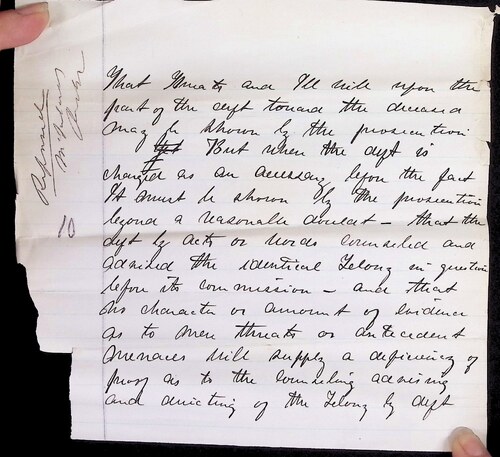 That Threats and Ill will upon the
part of the deft toward the deceased
may be shown by the prosecution
But when the deft is
charged as an accessory before the fact
It must be shown by the prosecution
beyond a reasonable doubt – that the
deft by acts or words counseled and
advised the identical Felony in question
before its commission – and that
no character or amount of evidence
as to mere threats or antecedent
menaces will supply a deficiency of
proof as to the counseling advising
and directing of the Felony by deft
Refused